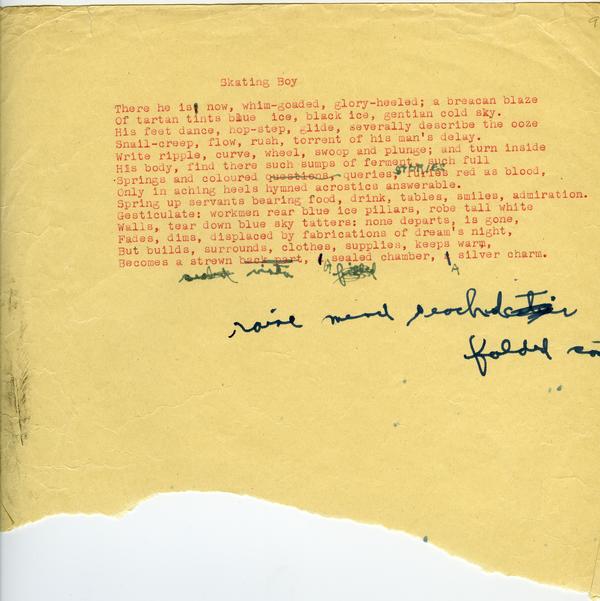 9
Skating Boy
There he is, now, whim-goaded, glory-heeled; a breacan blaze
Of tartan tints blue ice, black ice, gentian cold sky.
His feet dance, hop-step, glide, severally describe the ooze
Snail-creep, flow, rush, torrent of his man's delay.
Write ripple, curve, wheel, swoop and plunge; and turn inside
His body, find there such sumps of ferment, such full
Springs and coloured questions, queries, furies red as blood,
STORIES
Only in aching heels hymned acrostics answerable.
Spring up servants bearing food, drink, tables, smiles, admiration.
Gesticulate: workmen rear blue ice pillars, robe tall white
Walls, tear down blue sky tatters: none departs, is gone,
Fades, dims, displaced by fabrications of dream's night,
But builds, surrounds, clothes, supplies, keeps warm,
Becomes a strewn back part, A sealed chamber, A silver charm.
vista
raise
folded